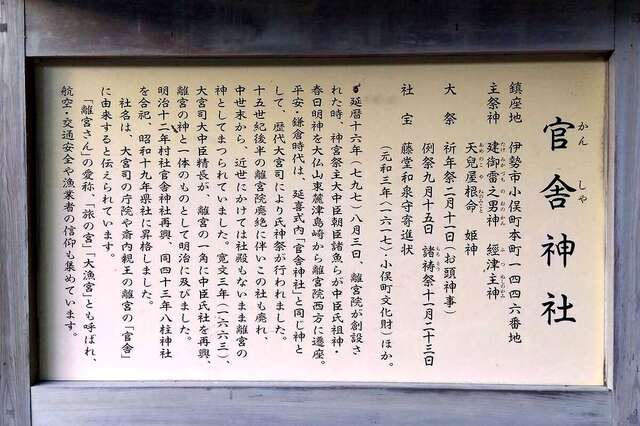 官舎神社
かん しゃ
鎮座地 伊勢市小俣町本町一四四六番地
主祭神 建御雷之男神 經津主神
天兒屋根命 姫神
大祭 祈年祭二月十一日（お頭神事）
例祭九月十五日 諸祷祭十一月二十三日
社宝 藤堂和泉守寄進状
（元和三年（一六一七）・小俣町文化財）ほか。
延暦十六年（七九七）八月三日、離宮院が創設さ
れた時、神宮祭主大中臣朝臣諸魚らが中臣氏祖神・
春日明神を大仏山東麓津島崎から離宮院西方に遷座。
平安・鎌倉時代は、延喜式内「官舎神社」と同じ神と
して、歴代大宮司により氏神祭が行われました。
十五世紀後半の離宮院廃絶に伴いこの社も廃れ、
中世末から、近世にかけては社殿もないまま離宮の
神としてまつられていました。寛文三年（一六六三）、
大宮司大中臣精長が、離宮の一角に中臣氏社を再興、
離宮の神と一体のものとして明治に及びました。
明治十二年村社官舎神社再興、同四十三年八柱神社
を合祀、昭和十九年県社に昇格しました。
社名は、大宮司の庁院や斎内親王の離宮の「官舎」
に由来すると伝えられています。
「離宮さん」の愛称、「旅の宮」「大漁宮」とも呼ばれ、
航空・交通安全や漁業者の信仰も集めています。